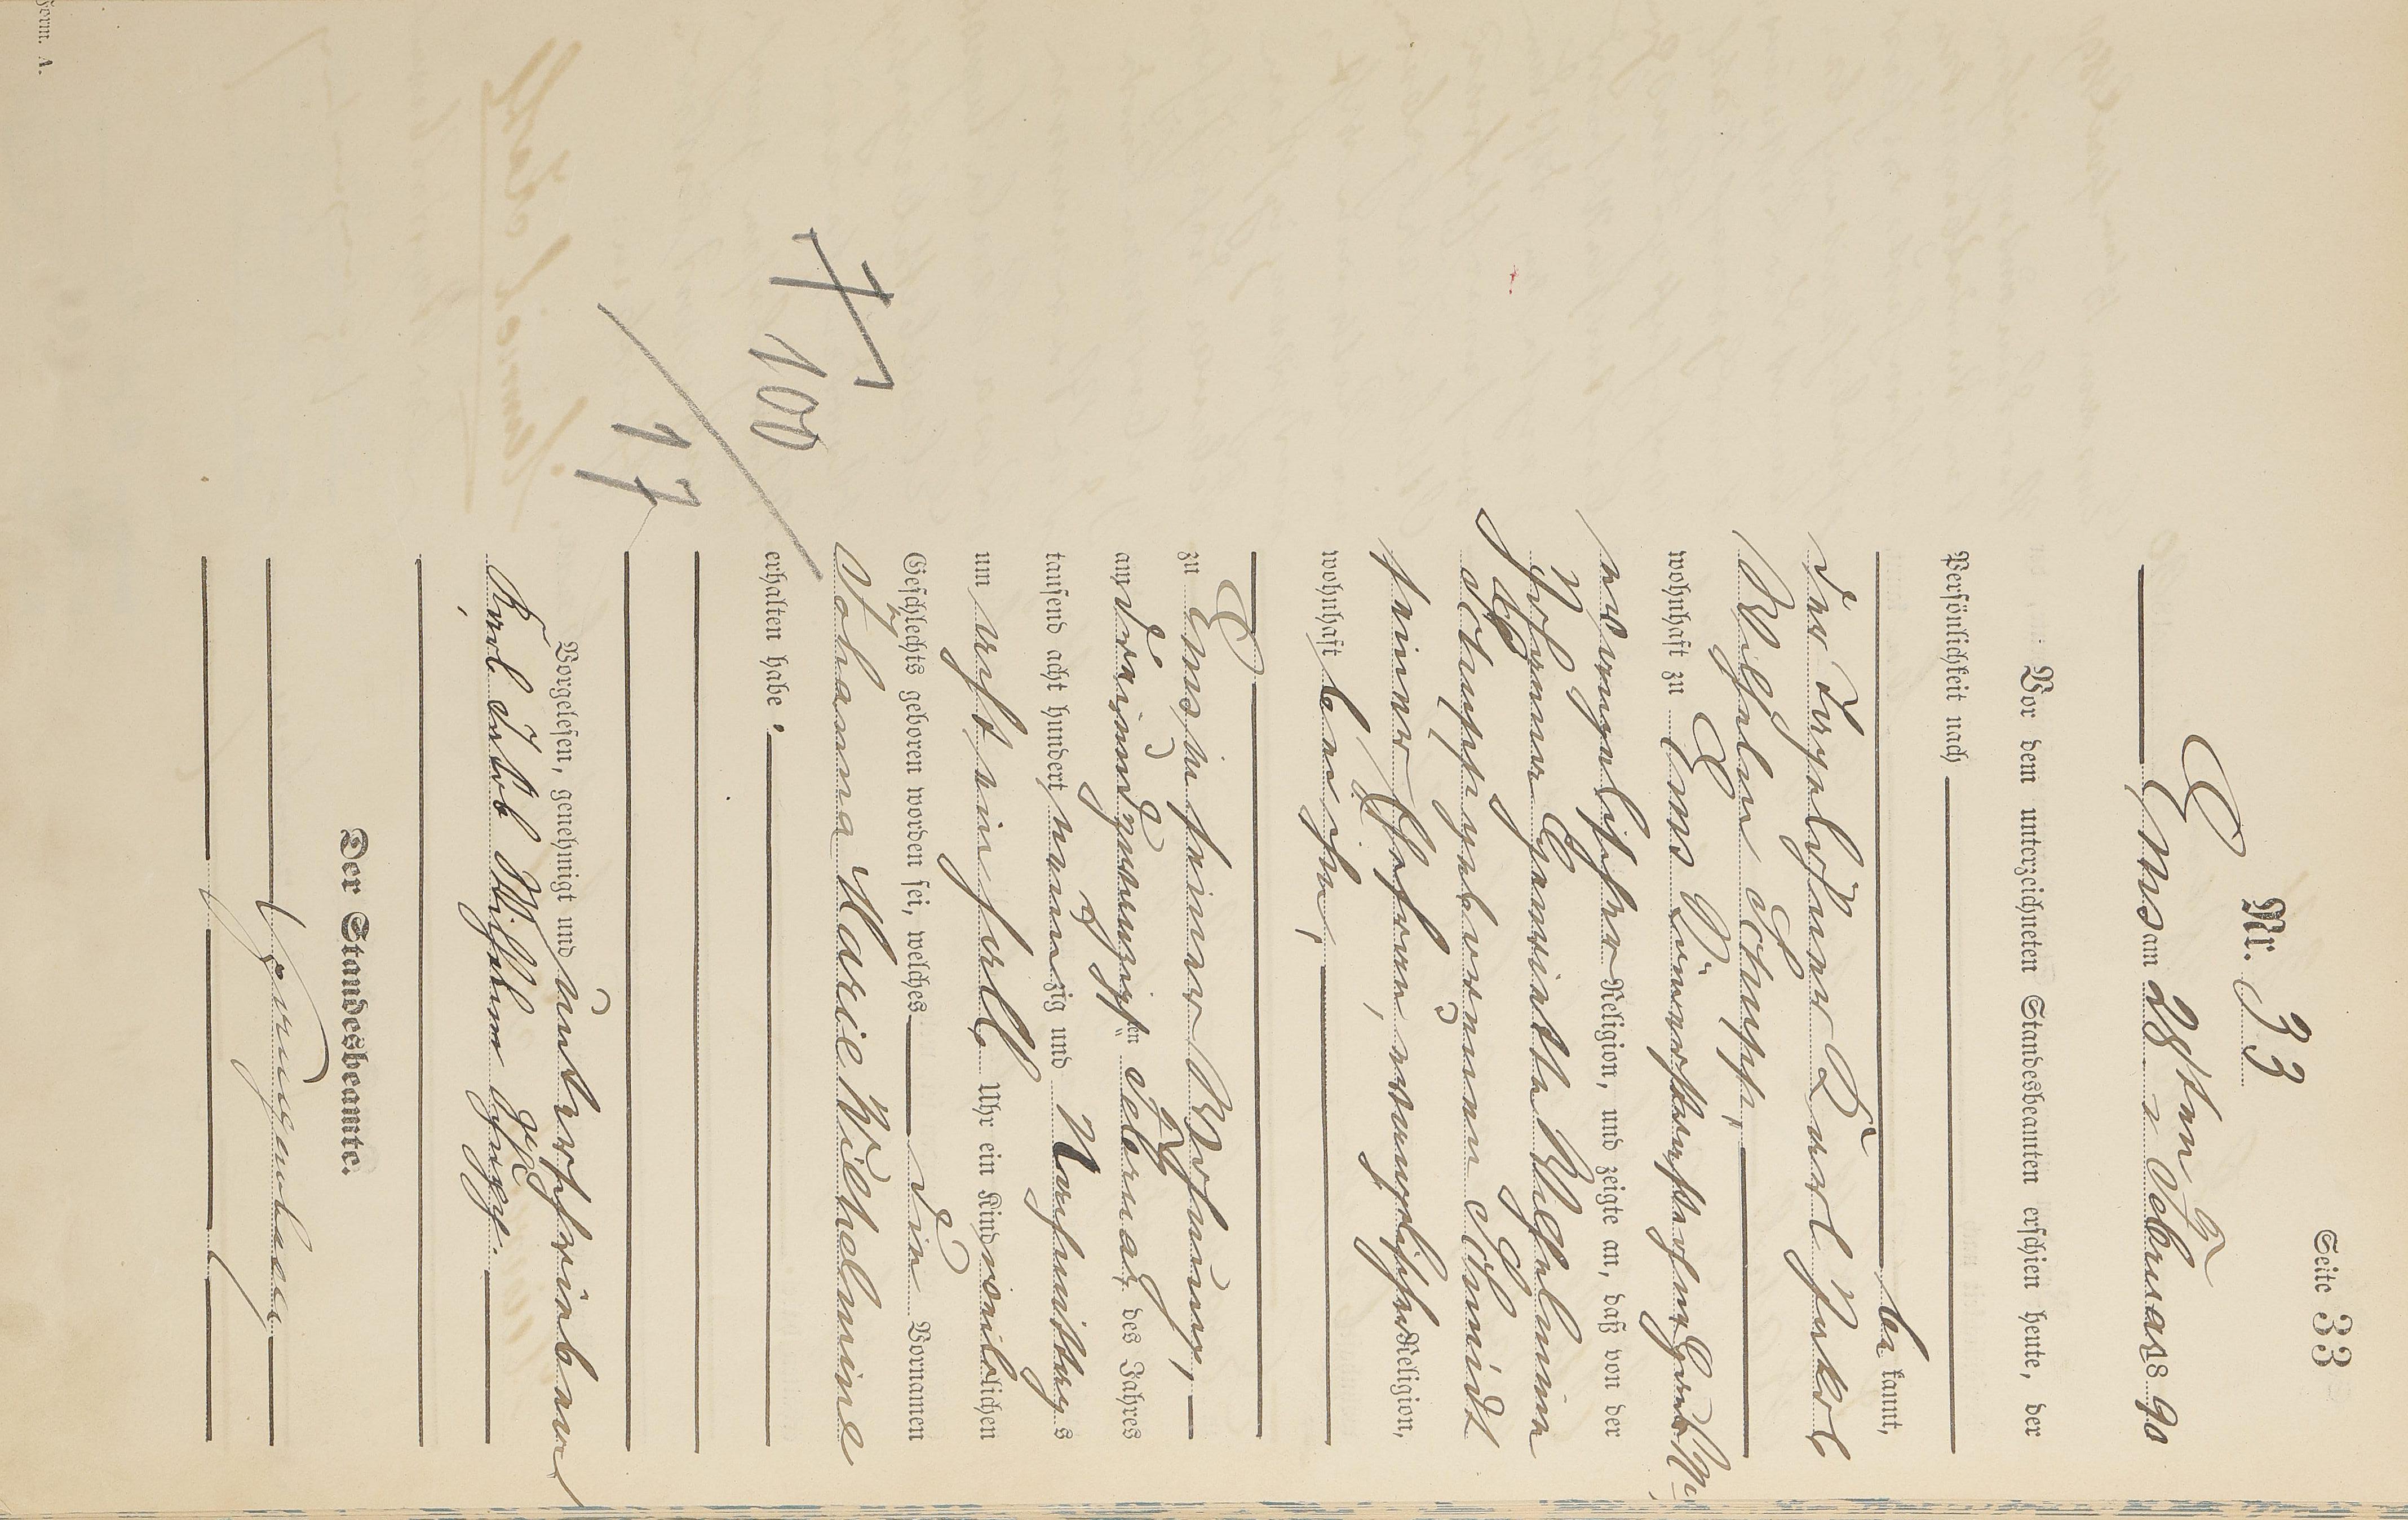 Seite 33
Nr. 33
Ems am 28ten Februar 1890
Vor dem unterzeichneten Standesbeamten erschien heute, der
Persönlichkeit nach
be kannt,
der Tagelöhner Karl Jakob
Wilhelm Schupp,
wohnhaft zu Ems
evangelischer Religion, und zeigte an, daß von der
Johanna Henriette Wilhelmine
Schupp geborenen Schmidt
seiner Ehefrau, evangelischer Religion,
wohnhaft bei ihm,
zu Ems in seiner Wohnung,
am dreiundzwanzigsten Februar des Jahres
tausend acht hundert neunzig und Nachmittags
um acht ein halb Uhr ein Kind weiblichen
Geschlechts geboren worden sei, welches die Vornamen
Johanna Marie Wilhelmine
erhalten habe.
Vorgelesen, genehmigt und unterschrieben
Karl Jakob Wilhelm Schupp.
Der Standesbeamte.
7
100
17
Form. A.